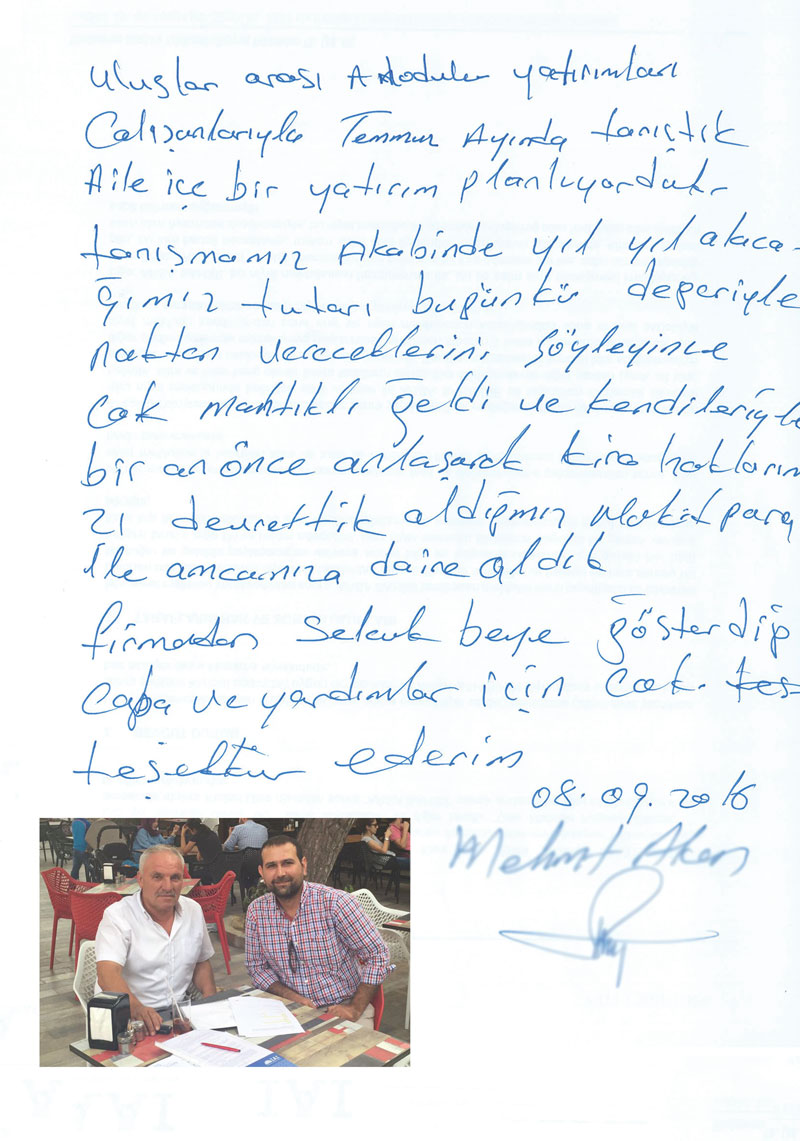 Uluslar arası Anadolu yatırımları
Calışanlarıyla Temmuz Ayında tanıştık
Aile içe bir yatırım planlıyorduk.
tanışmamız Akabinde yıl yıl alaca-
ğımız tutarı bugünkü değeriyle
nakten vereceklerini söyleyince
Cok mantıklı geldi ve kendileriyle
bir an önce anlaşarak kira haklarım
ZI devrettik aldığımız Nakit para
ile amcamıza daire aldık
firmadan Selcuk beye gösterdiğ
Caba ve yardımlar için Cok tes
teşekkür ederim
08.09.2016
Mehmet Akan